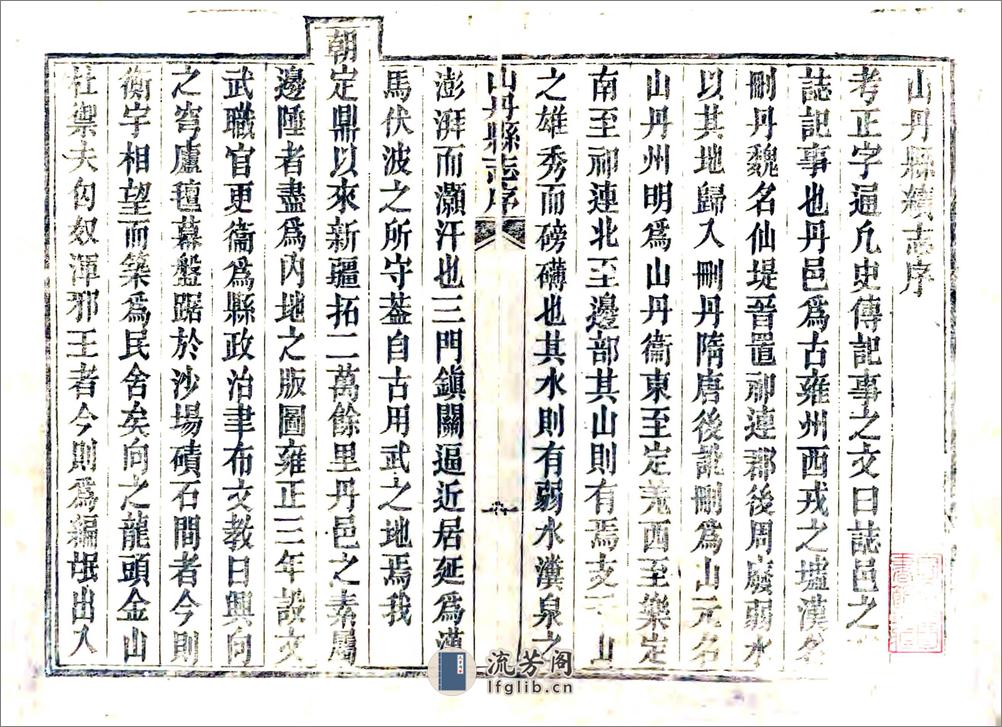 山丹縣續志序
考正字通凡史傳記事之文曰誌邑之
誌記事也丹邑爲古雍州西戎之墟漢名
刪丹魏名仙堤晉置祁連郡後周廢弱水
以其地歸入刪丹隋唐後訛刪爲山元名
山丹州明爲山丹衞東至定羌西至樂定
南至祁連北至邊部其山則有焉支 山
之雄秀而磅礴也其水則有弱水瀵泉之
山丹縣志序
澎湃而灝汗也三門鎭關逼近居延爲漢
馬伏波之所守葢自古用武之地焉我
朝定鼎以來新疆拓二萬餘里丹邑之素屬
邊陲者盡爲內地之版圖雍正三年設文
武職官更衞爲縣政治聿布文教日興向
之穹廬氊幕盤踞於沙場磧石間者今則
衡宇相望而築爲民舍矣向之龍頭金山
杜禦夫匈奴渾邪王者今則爲編氓出入
流芳阁
lfglib.cn